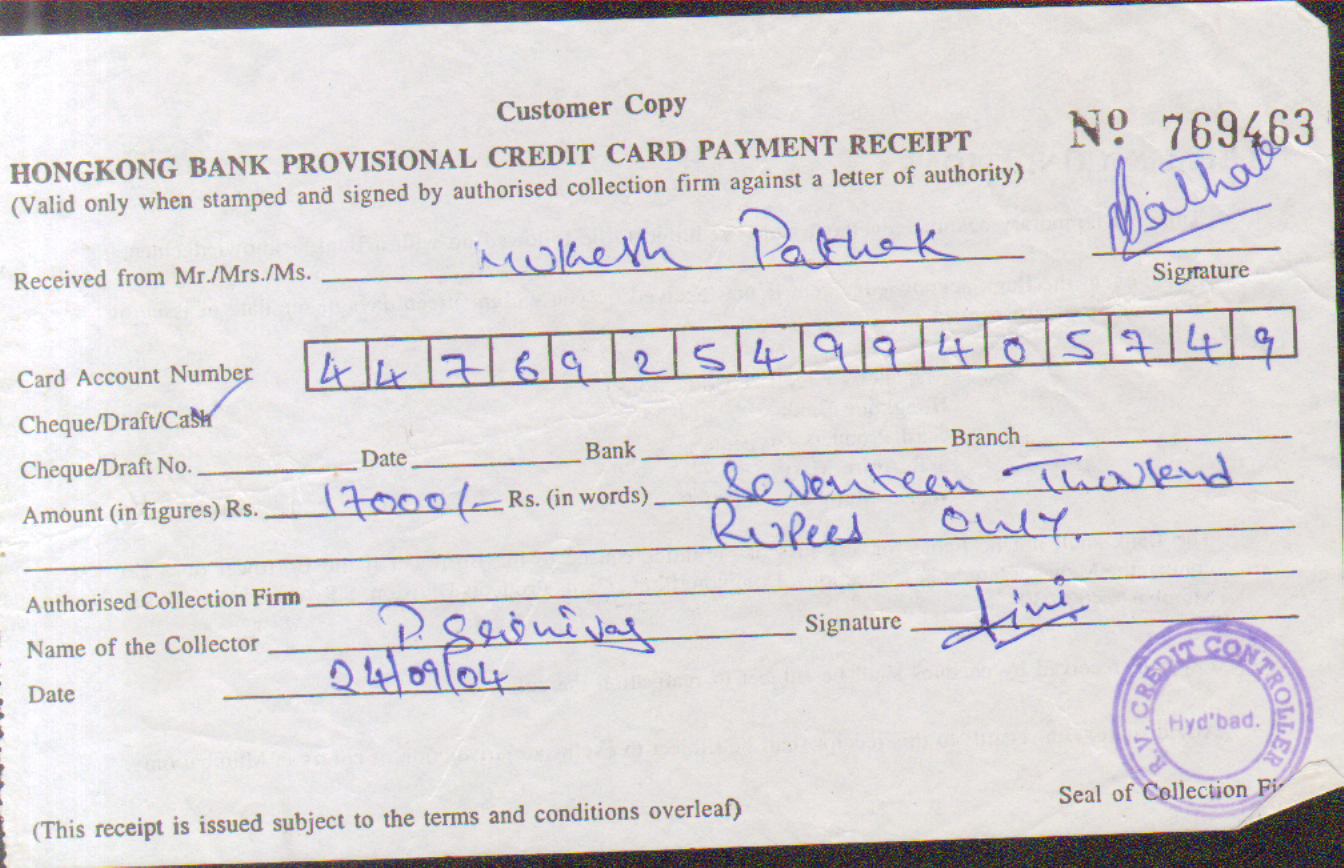 Customer Copy
Nº 769463
HONGKONG BANK PROVISIONAL CREDIT CARD PAYMENT RECEIPT
(Valid only when stamped and signed by authorised collection firm against a letter of authority)
Received from Mr./Mrs./Ms. Mukesh Pathak
Signature
Card Account Number 4476925499405749
Cheque/Draft/Cash
Cheque/Draft No. Date Bank Branch
Amount (in figures) Rs. 17000/- Rs. (in words) Seventeen Thousand
Rupees only.
Authorised Collection Firm
Name of the Collector P. Srinivas Signature
Date 24/09/04
R.V. CREDIT CONTROLLER
Hyd'bad.
Seal of Collection
(This receipt is issued subject to the terms and conditions overleaf)